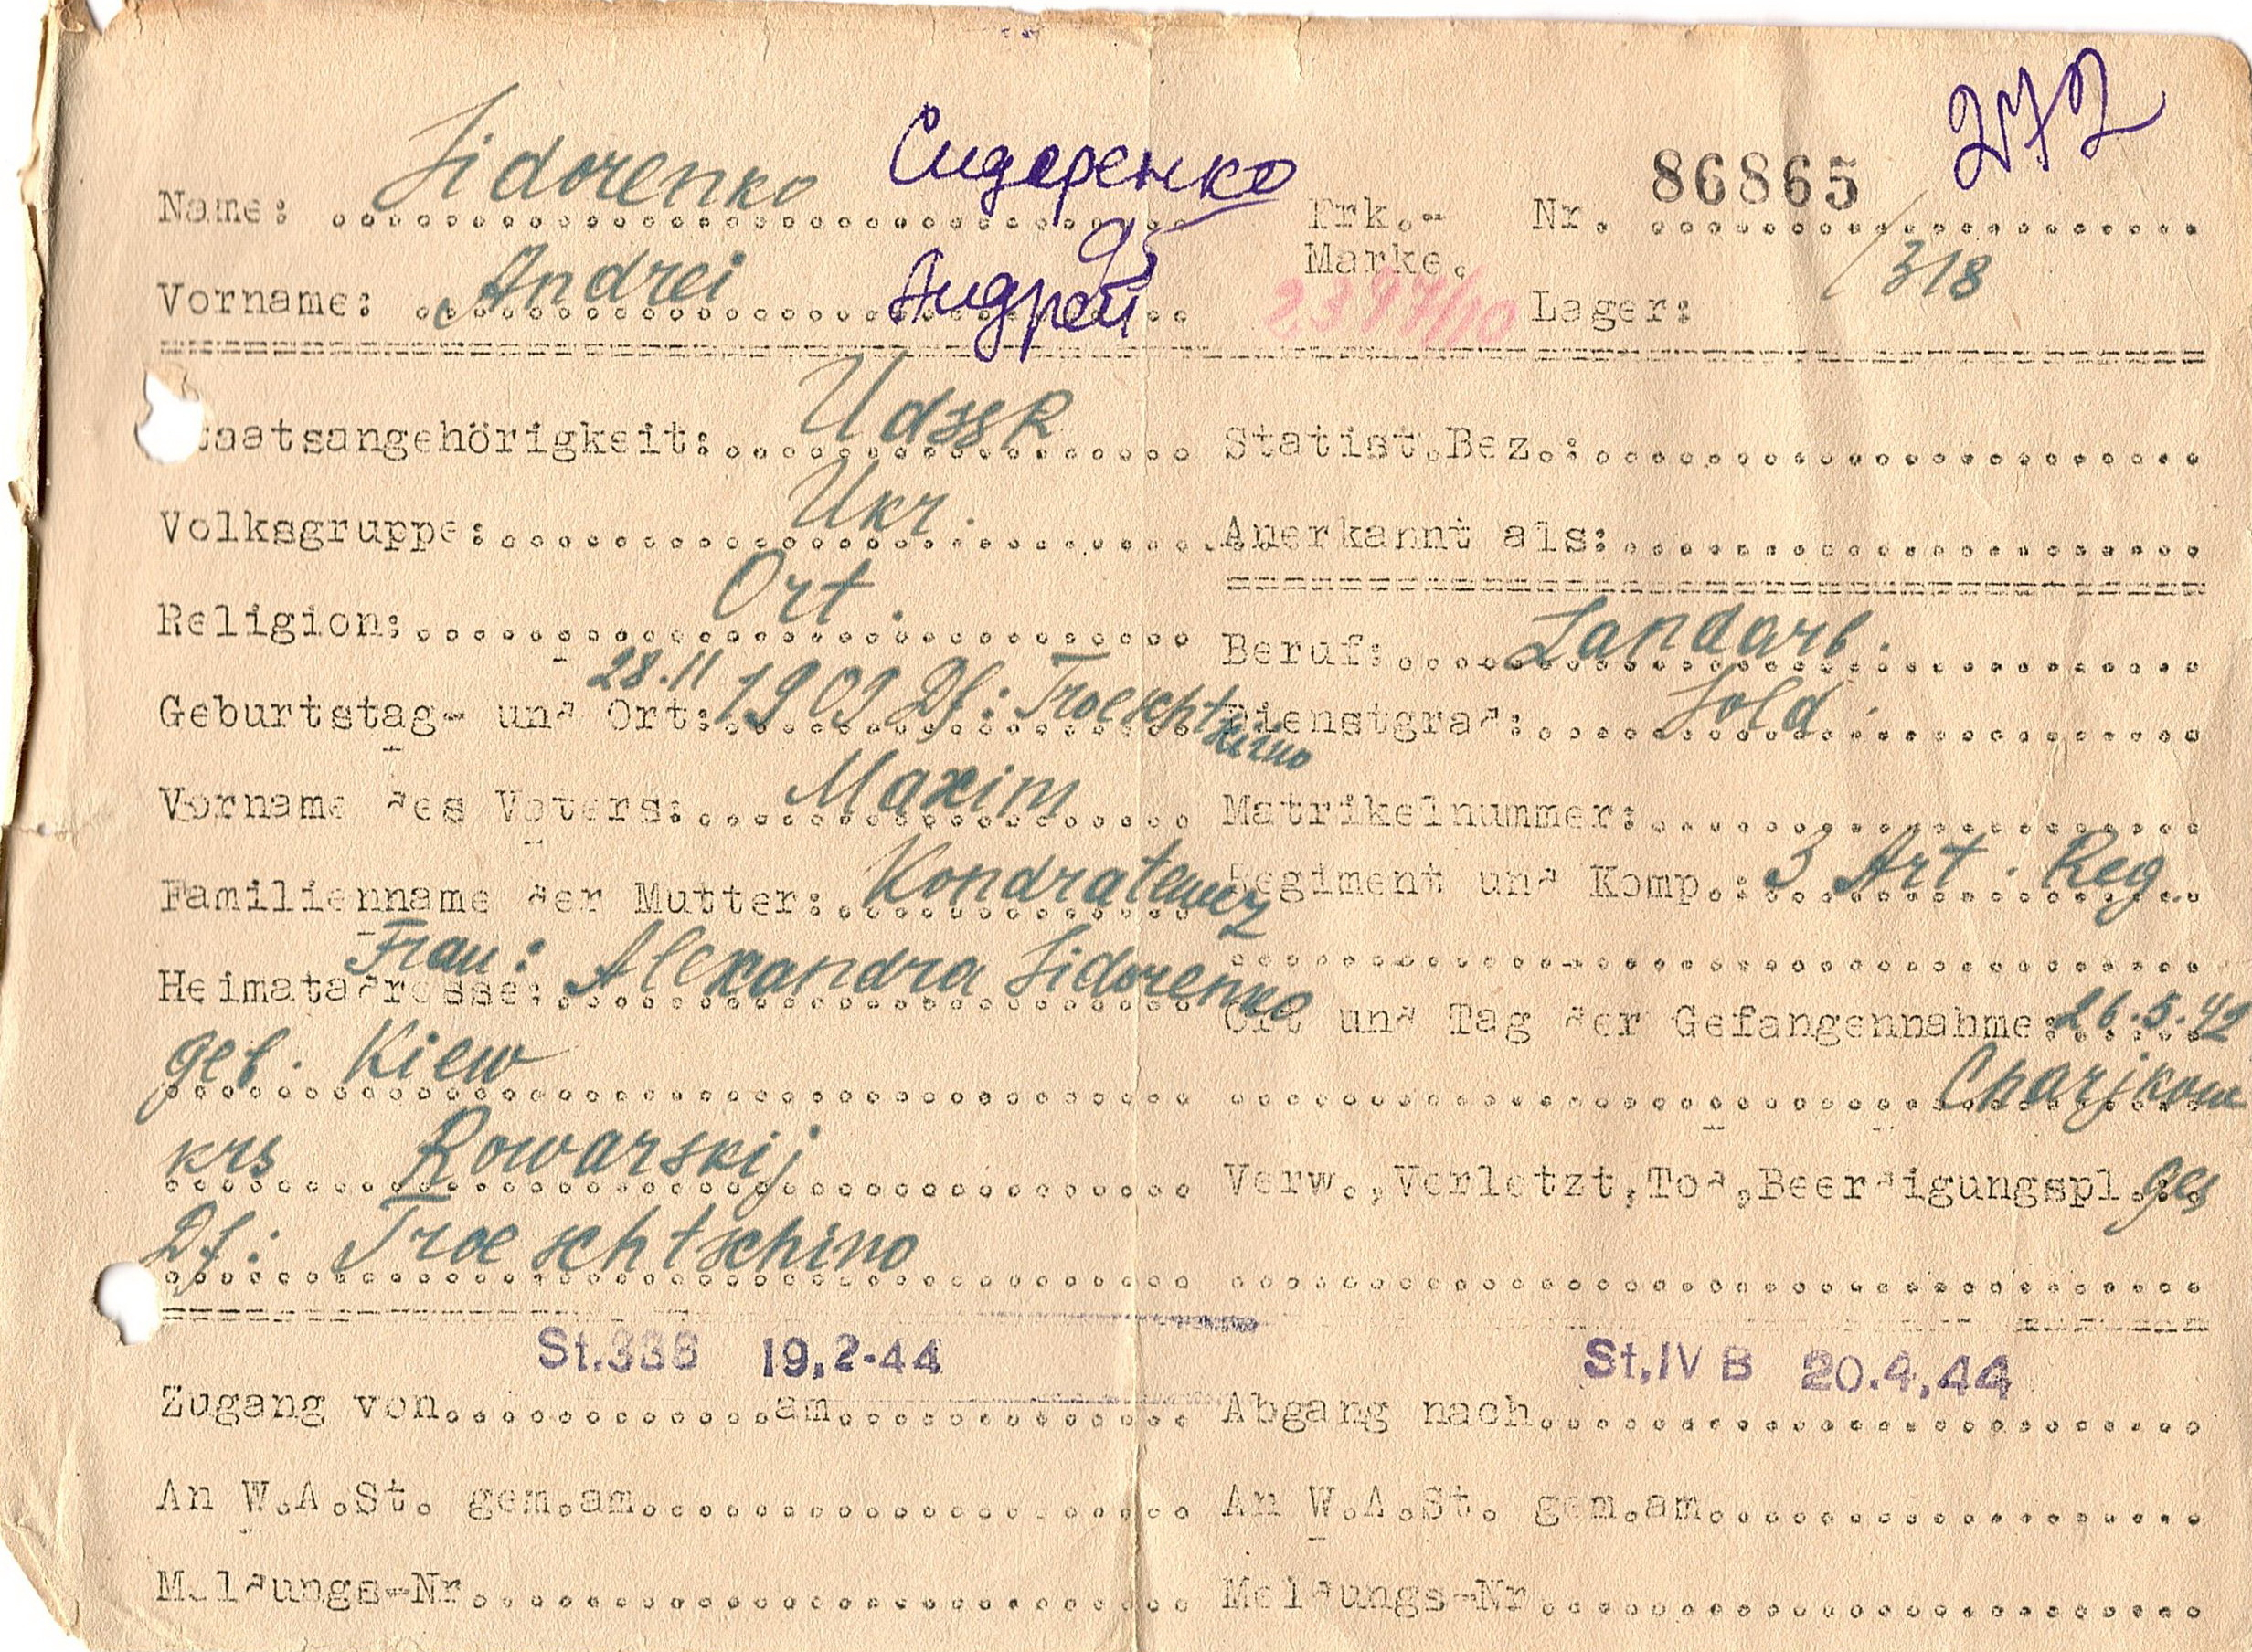 272
Name: Sidorenko Сидоренко Erk.- Nr. 86865
Marke. /318
Vorname: Andrei Андрей Lager:
Staatsangehörigkeit: UdSSR Statist.Bez.:
Volksgruppe: Ukr. Anerkannt als:
Religion: Ort. Beruf: Landarb.
Geburtstag- und Ort: 28.11 1909 Df: Troeschtschino Dienstgrad: Sold.
Vorname des Vaters: Maxim Matrikelnummer:
Familienname der Mutter: Regiment und Komp.: 3 Art. Reg.
Heimatadresse: Frau: Alexandra Sidorenko
Ort und Tag der Gefangennahme: 26.5.42
geb. Kiew Charjkow
krs Rowarskij Verw., Verletzt, Tod, Beerdigungspl.: ges
Df: Troeschtschino
St.336 19.2-44 St.IV B 20.4.44
Zugang von am Abgang nach
An W.A.St. gem.am An W.A.St. gem.am
Meldungs-Nr Meldungs-Nr